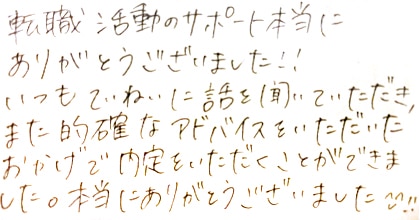 転職活動のサポート本当に
ありがとうございました!!
いつもていねいに話を聞いていただき、
また的確なアドバイスをいただいた
おかげで内定をいただくことができま
した。本当にありがとうございました!!